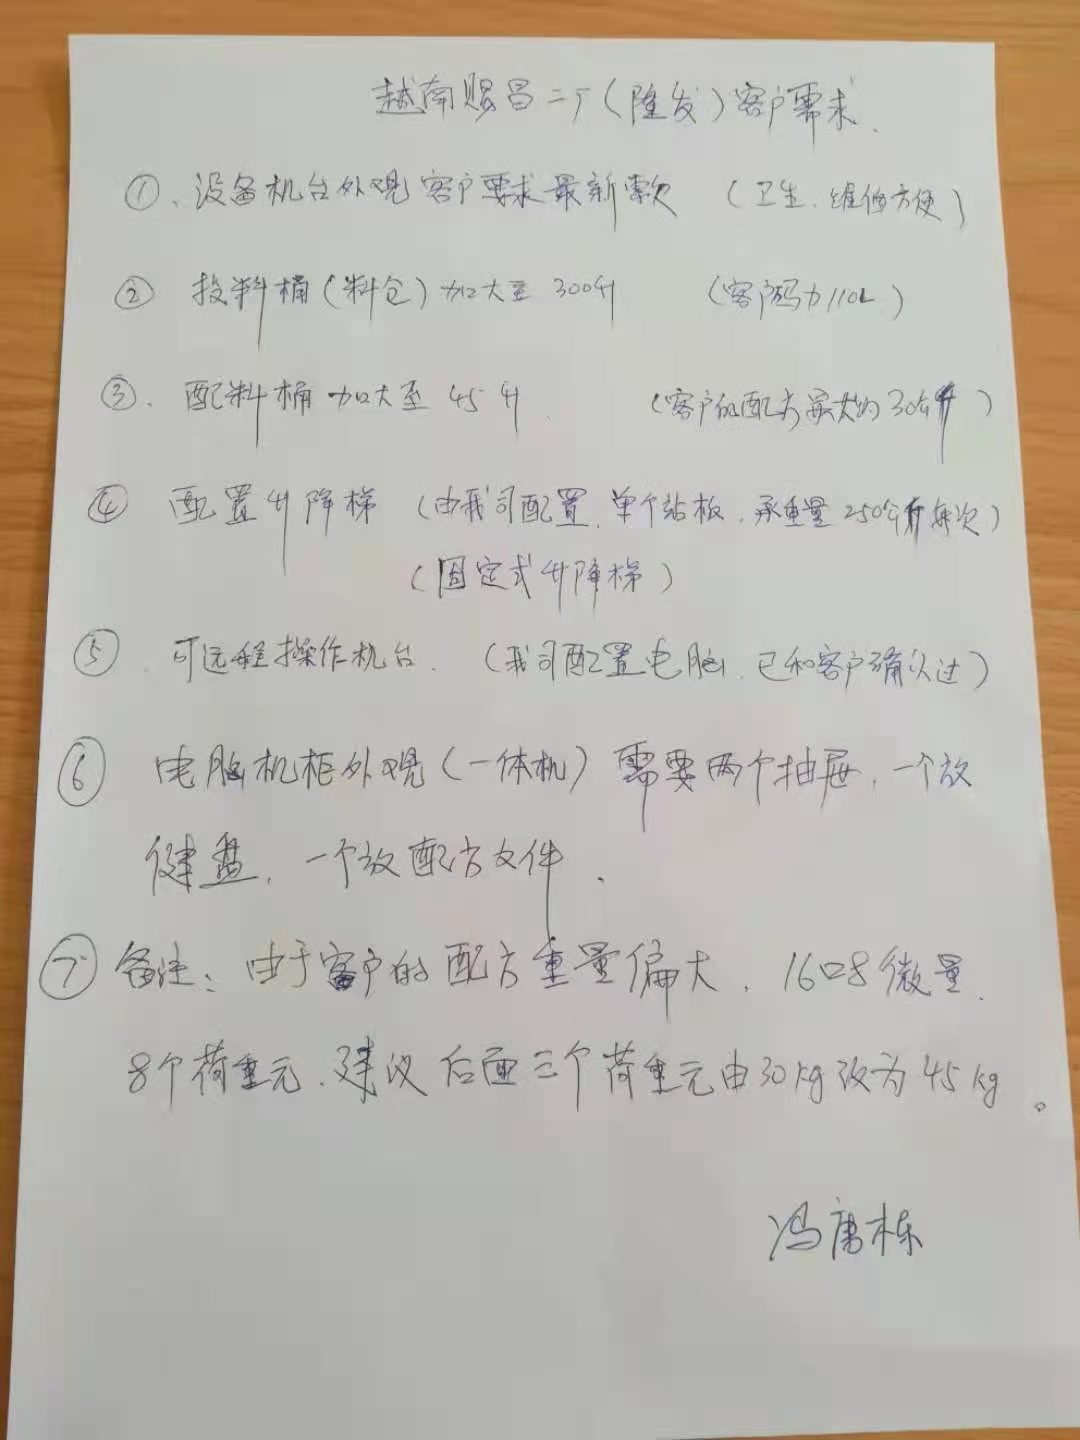 越南赐昌二厂(隆发)客户需求.
①、设备机台外观客户要求最新款 (卫生、维修方便)
② 投料桶(料仓)加大至300升 (客户码为110L)
③、配料桶加大至45升. (客户的配方最大为30公斤)
④ 配置升降梯 (由我司配置、单个站板、承重量250公斤每次)
(固定式升降梯)
⑤ 可远程操作机台. (我司配置电脑、已和客户确认过)
⑥ 电脑机柜外观(一体机)需要两个抽屉,一个放
键盘,一个放配方文件.
⑦ 备注:由于客户的配方重量偏大,1608微量
8个荷重元、建议后面三个荷重元由30kg改为45kg。
冯唐栋